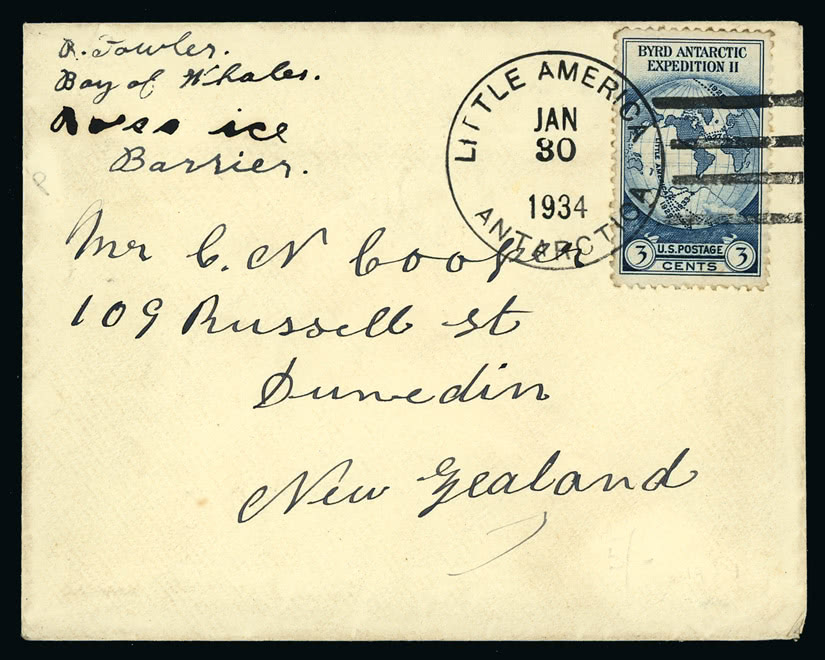 R. Fowler.
Bay of Whales.
Ross ice
Barrier.
LITTLE AMERICA
JAN
30
1934
ANTARCTICA
BYRD ANTARCTIC
EXPEDITION II
LITTLE AMERICA
3 U.S. POSTAGE 3
CENTS
Mr C. N Cooper
109 Russell St
Dunedin
New Zealand